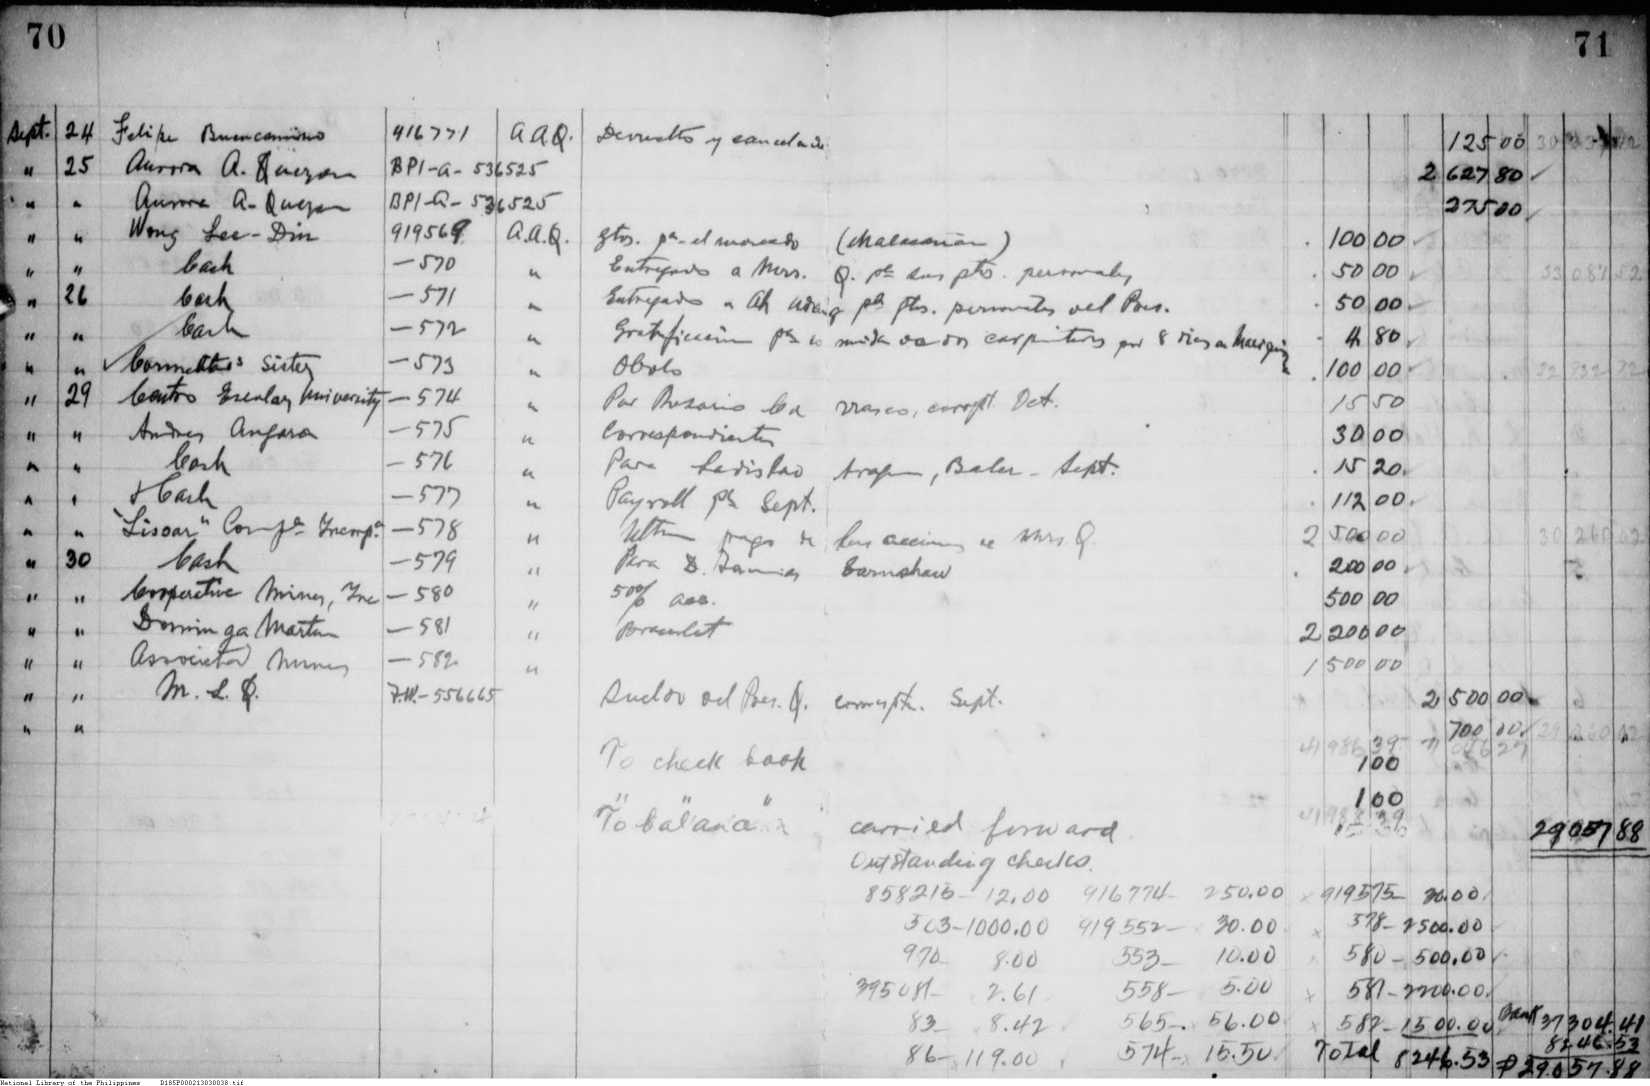 70
71
Sept. 24 Felipe Buencamino 916771 A.A.Q. Devuelto y cancelado 125 00
" 25 Aurora A. Quezon BPI-A-536525 2 627 80
" " Aurora A. Quezon BPI-A-536525 275 00
" " Wong Lee-Din 919569 A.A.Q. gtos. pa. el mercado (Malacañan) 100 00
" " Cash —570 " Entregado a Mrs. Q. pa sus gtos. personales 50 00
" 26 Cash —571 " Entregado a Ah pa gtos. personales del Pres. 50 00
" " Cash —572 " Gratificación pa carpinteros por 8 dias 4 80
" " Sister —573 " Obolo 100 00
" 29 Centro Escolar University —574 " Por Rosario Oct. 15 50
" " Andres Angara —575 " Correspondientes 30 00
" " Cash —576 " Para Ladislao Baler - Sept. 15 20
" " Cash —577 " Payroll pa Sept. 112 00
" " "Lissar" —578 " de las acciones de Mrs Q. 2 500 00
" 30 Cash —579 " Para Earnshaw 200 00
" " Cooperative Mines, Inc —580 " 50% 500 00
" " Dominga Martin —581 " Bracelet 2 200 00
" " Associated Mines —582 " 1 500 00
" " M. L. Q. 556665 Sueldo del Pres. Q. Sept. 2 500 00
" " 700 00
To check book 100
100
To balance carried forward 29057 88
Outstanding checks.
858216- 12.00 916774- 250.00 919575- 30.00
503-1000.00 919552- 30.00 578- 2500.00
970- 8.00 553- 10.00 580- 500.00
395081- 2.61 558- 5.00 581- 2200.00
83- 8.42 565- 56.00 582- 1500.00 Bank 37304.41
86- 119.00 574- 15.50 Total 8246.53 8246.53
₱29.057.88
National Library of the Philippines D185P000213030038.tif